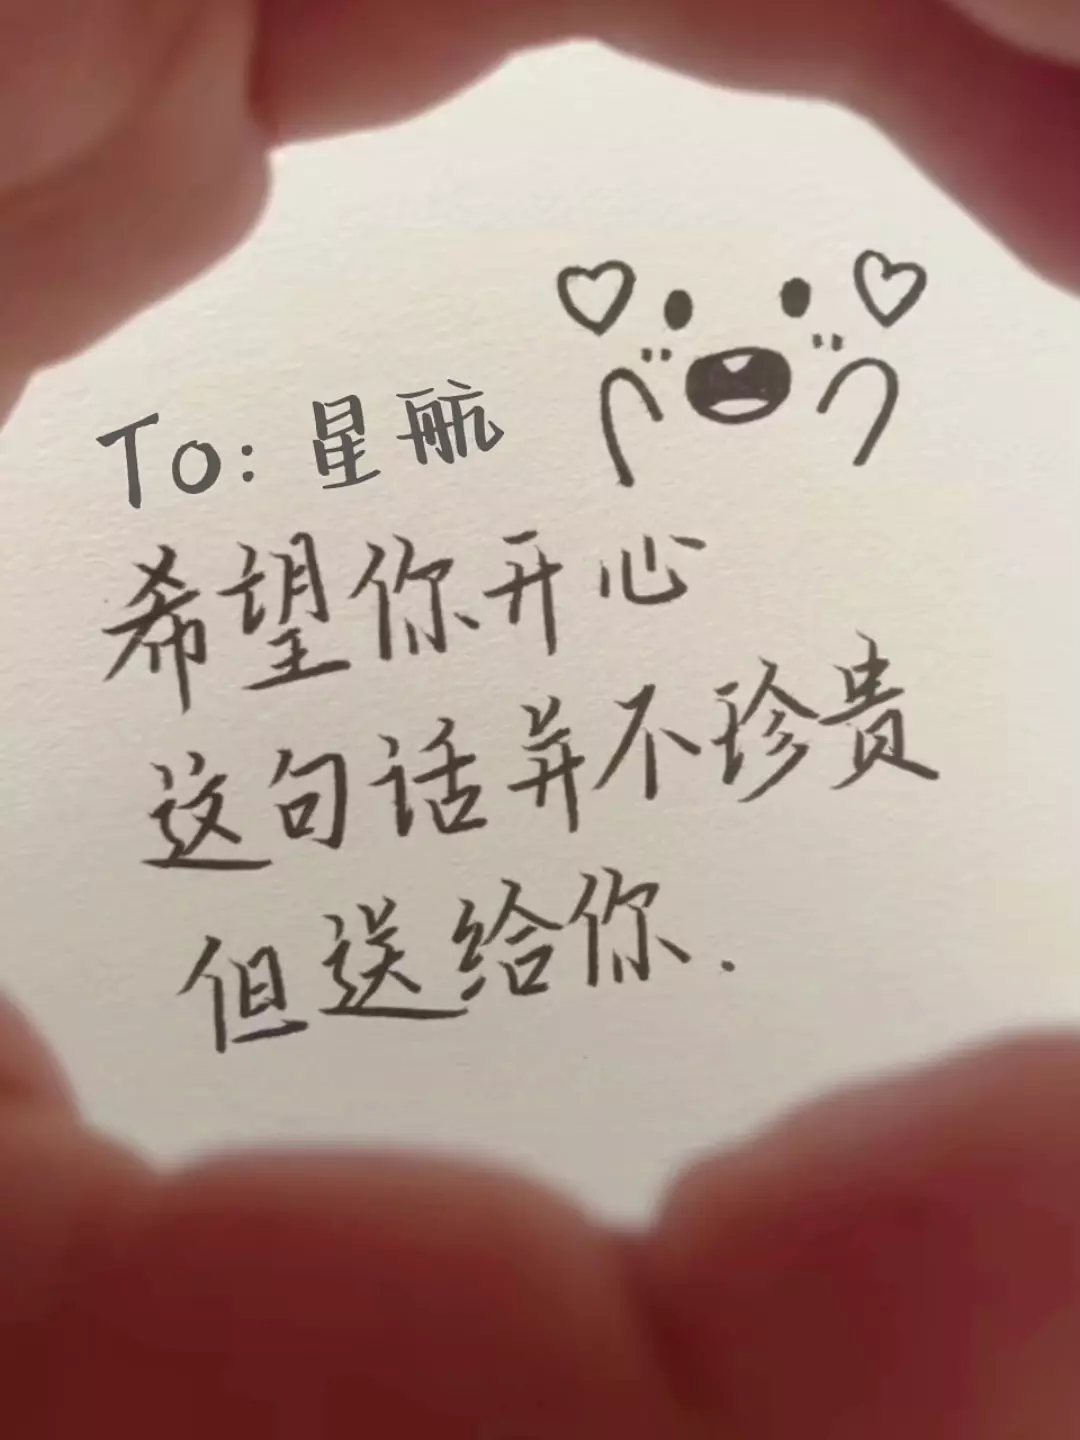 To: 星航
希望你开心
这句话并不珍贵
但送给你.